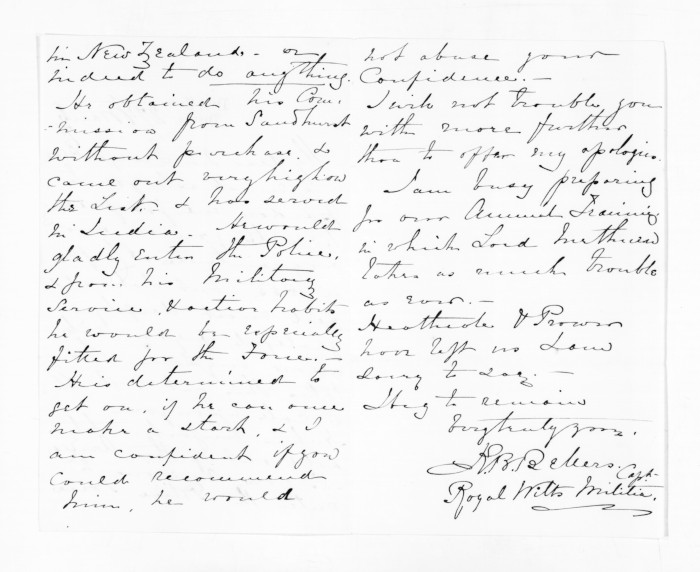 in New Zealand - or
indeed to do anything.
He obtained his Com-
-mission from Sandhurst
without purchase, &
came out very high on
the List. - & has served
in India. He would
gladly enter the Police,
& from his Military
Service, & active habits
he would be especially
fitted for the Force. -
He is determined to
get on, if he can once
make a start, & I
am confident if you
could recommend
him, he would
not abuse your
Confidence. -
I will not trouble you
with more further
than to offer my apologies.
I am busy preparing
for our Annual Training
in which Lord Methuen
takes as much trouble
as ever. -
Heathcote & Prower
have left us I am
sorry to say. -
I beg to remain
Very truly yours,
H.B. Bellers. Capt.
Royal Wilts Militia.